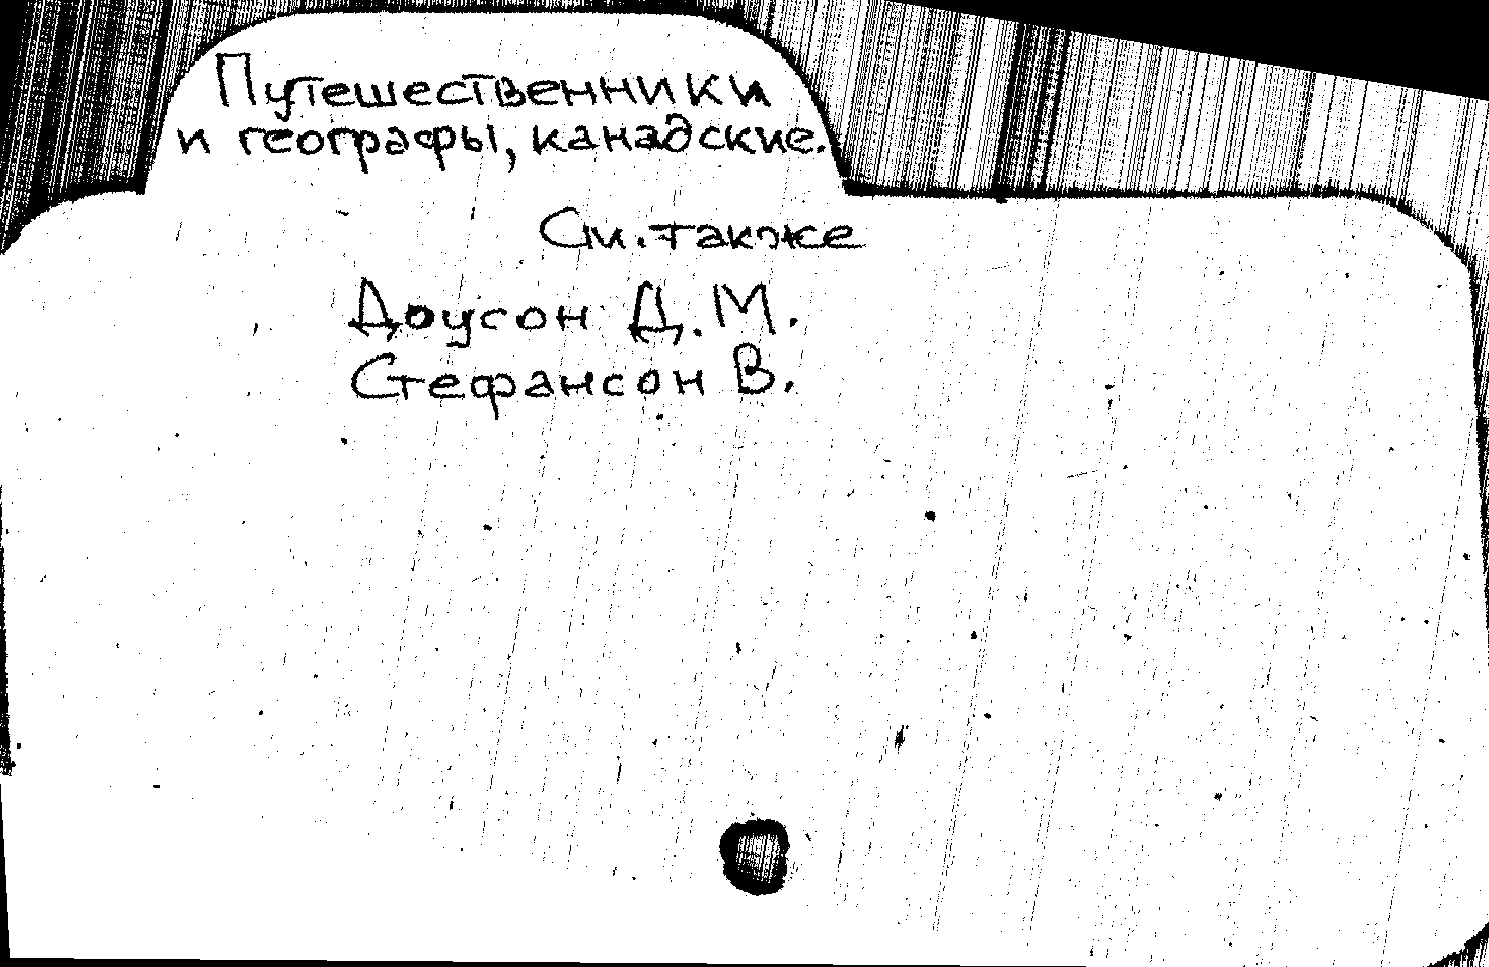 Путешественники
и географы, канадские.
См. также
Доусон Д. М.
Стефансон В.